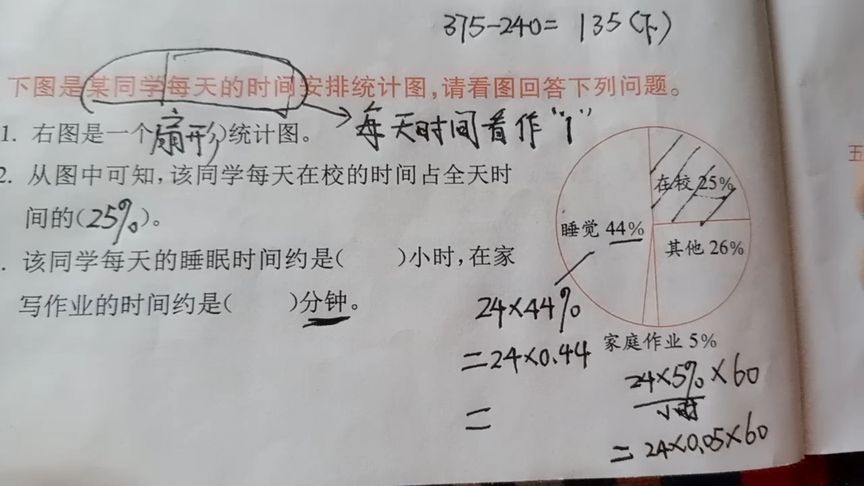 375-240= 135(下)
下图是某同学每天的时间安排统计图,请看图回答下列问题。
1. 右图是一个(扇形)统计图。
每天时间看作"1"
2. 从图中可知,该同学每天在校的时间占全天时
间的(25%)。
. 该同学每天的睡眠时间约是( )小时,在家
写作业的时间约是( )分钟。
在校 25%
睡觉 44%
其他 26%
家庭作业 5%
24×44%
=24×0.44
=
24×5%×60
小时
=24×0.05×60
五